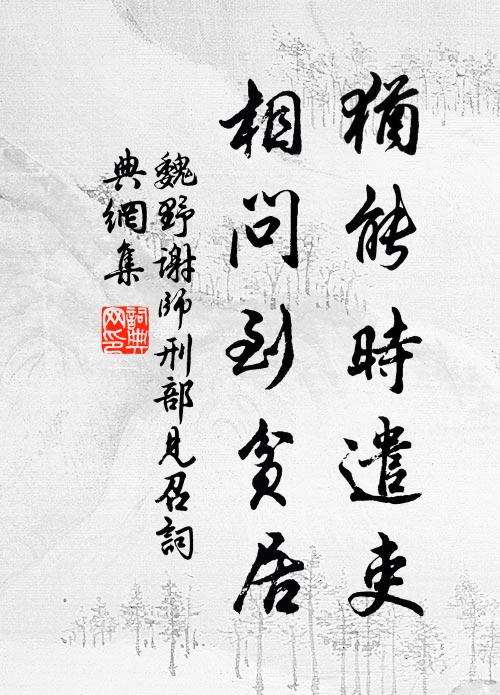 猶能時遣吏
相問到貧居
魏野謝師刑部見召詞
典網集
詞典网印